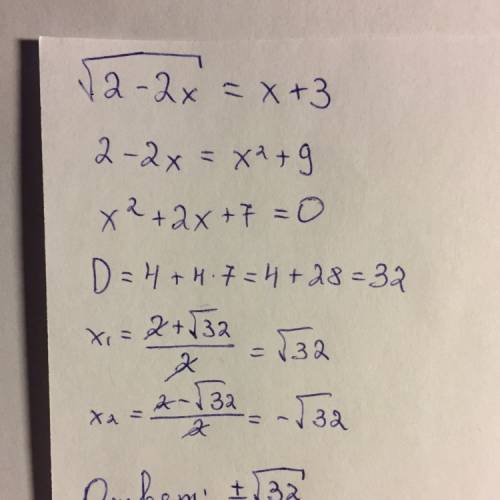 √(2 - 2x) = x + 3
2 - 2x = x² + 9
x² + 2x + 7 = 0
D = 4 + 4·7 = 4 + 28 = 32
x₁ = (2 + √32)/2 = √32
x₂ = (2 - √32)/2 = -√32
Ответ: ±√32